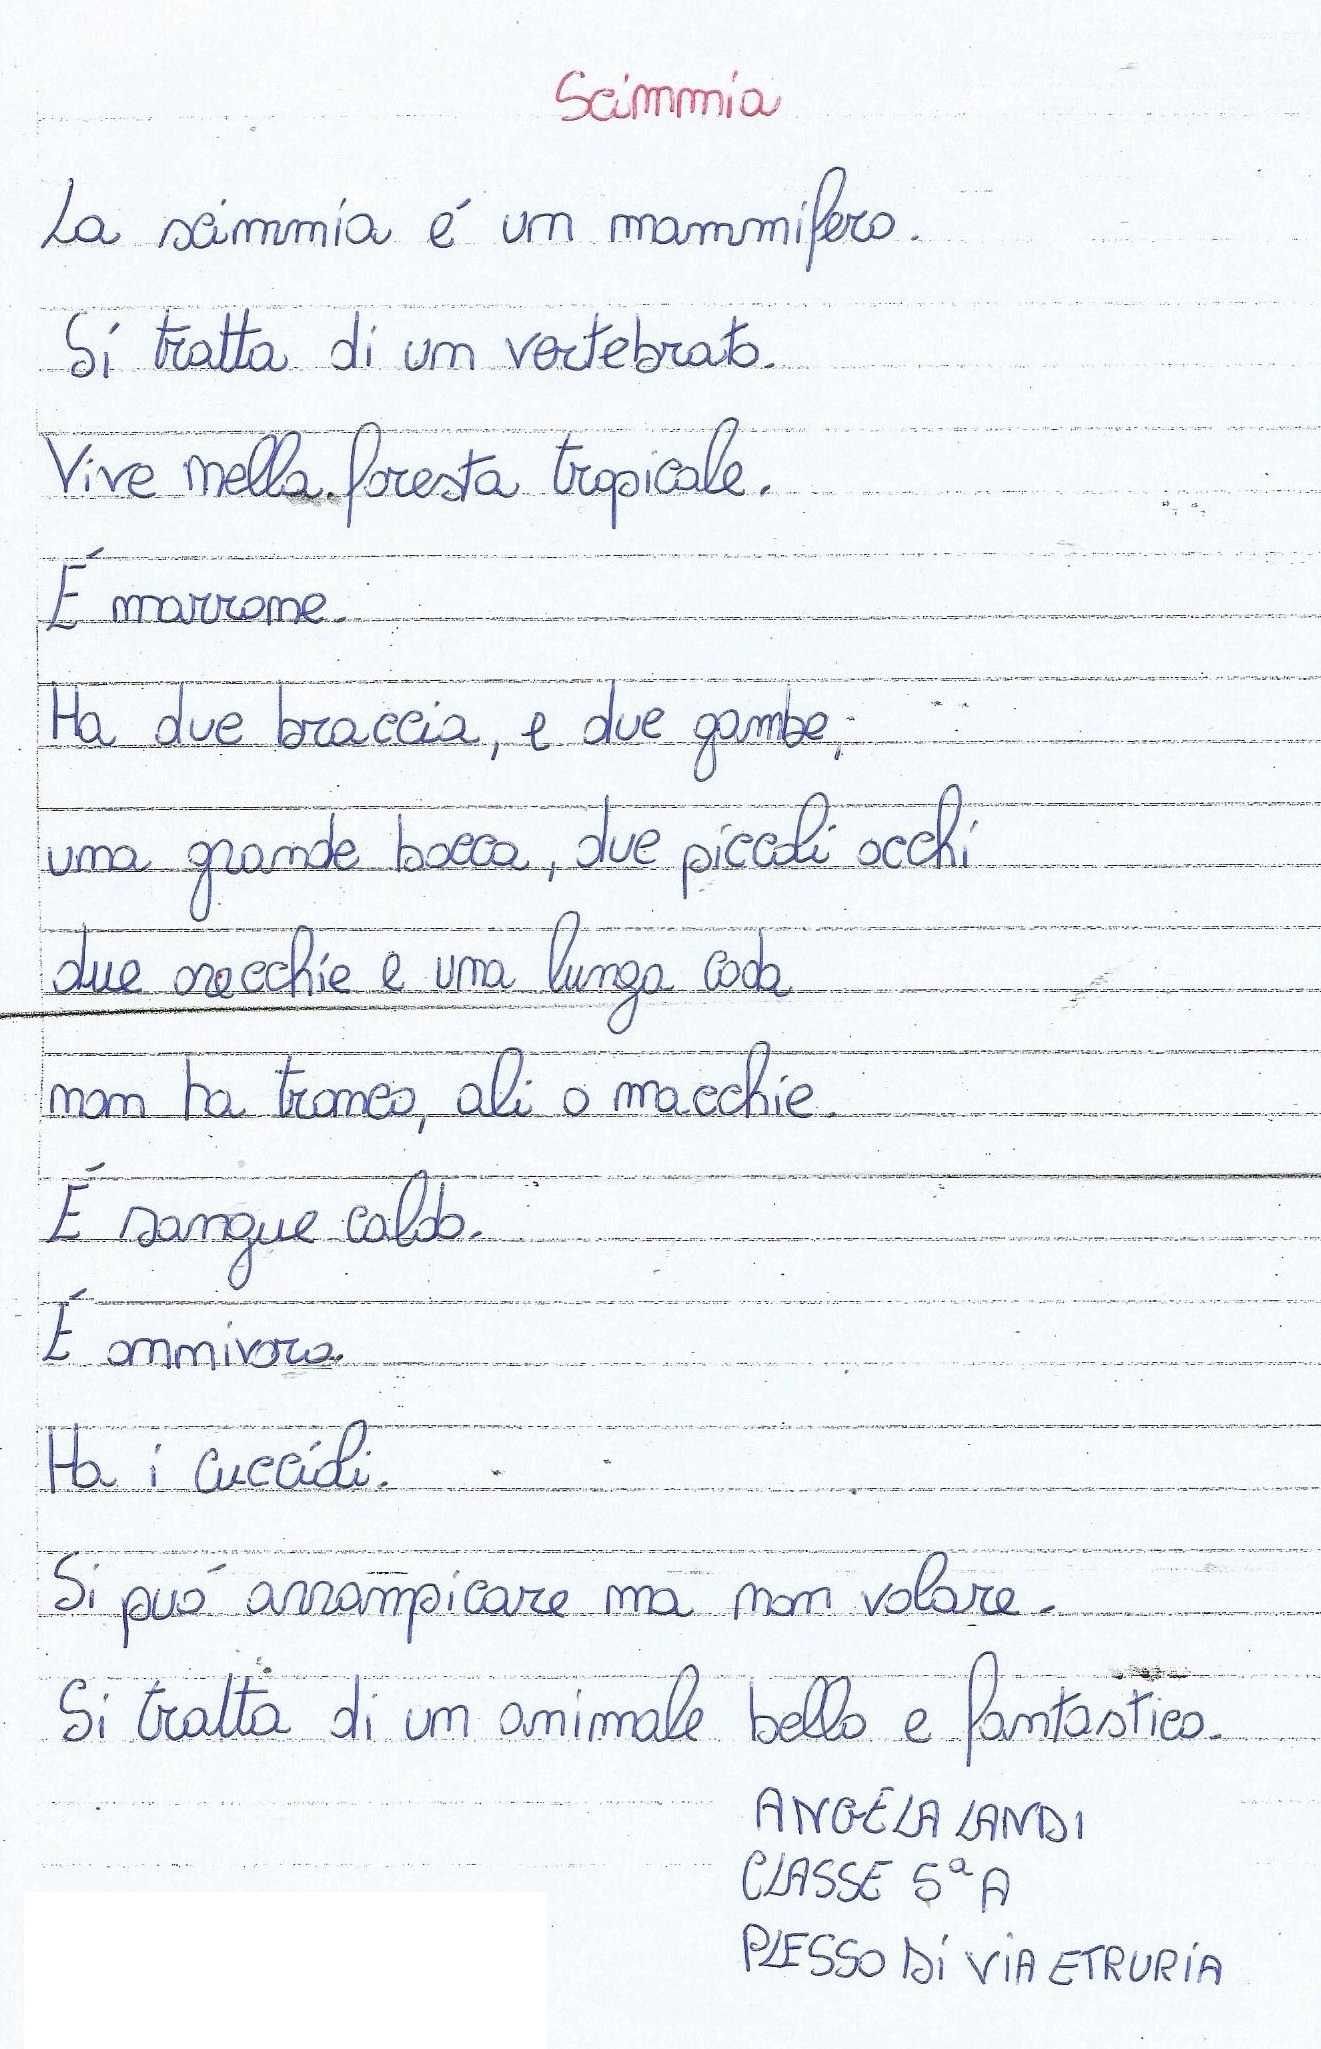 Scimmia
La scimmia é un mammifero.
Si tratta di un vertebrato.
Vive nella foresta tropicale.
É marrone.
Ha due braccia, e due gambe,
una grande bocca, due piccoli occhi
due orecchie e una lunga coda
non ha tronco, ali o macchie.
É sangue caldo.
É onnivora.
Ha i cuccioli.
Si puó arrampicare ma non volare.
Si tratta di un animale bello e fantastico.
ANGELA LANDI
CLASSE 5ª A
PLESSO Di ViA ETRURiA